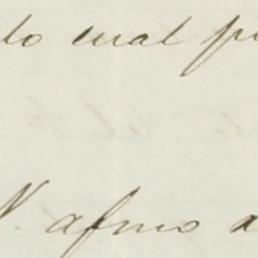 lo cual p
V. afmo a